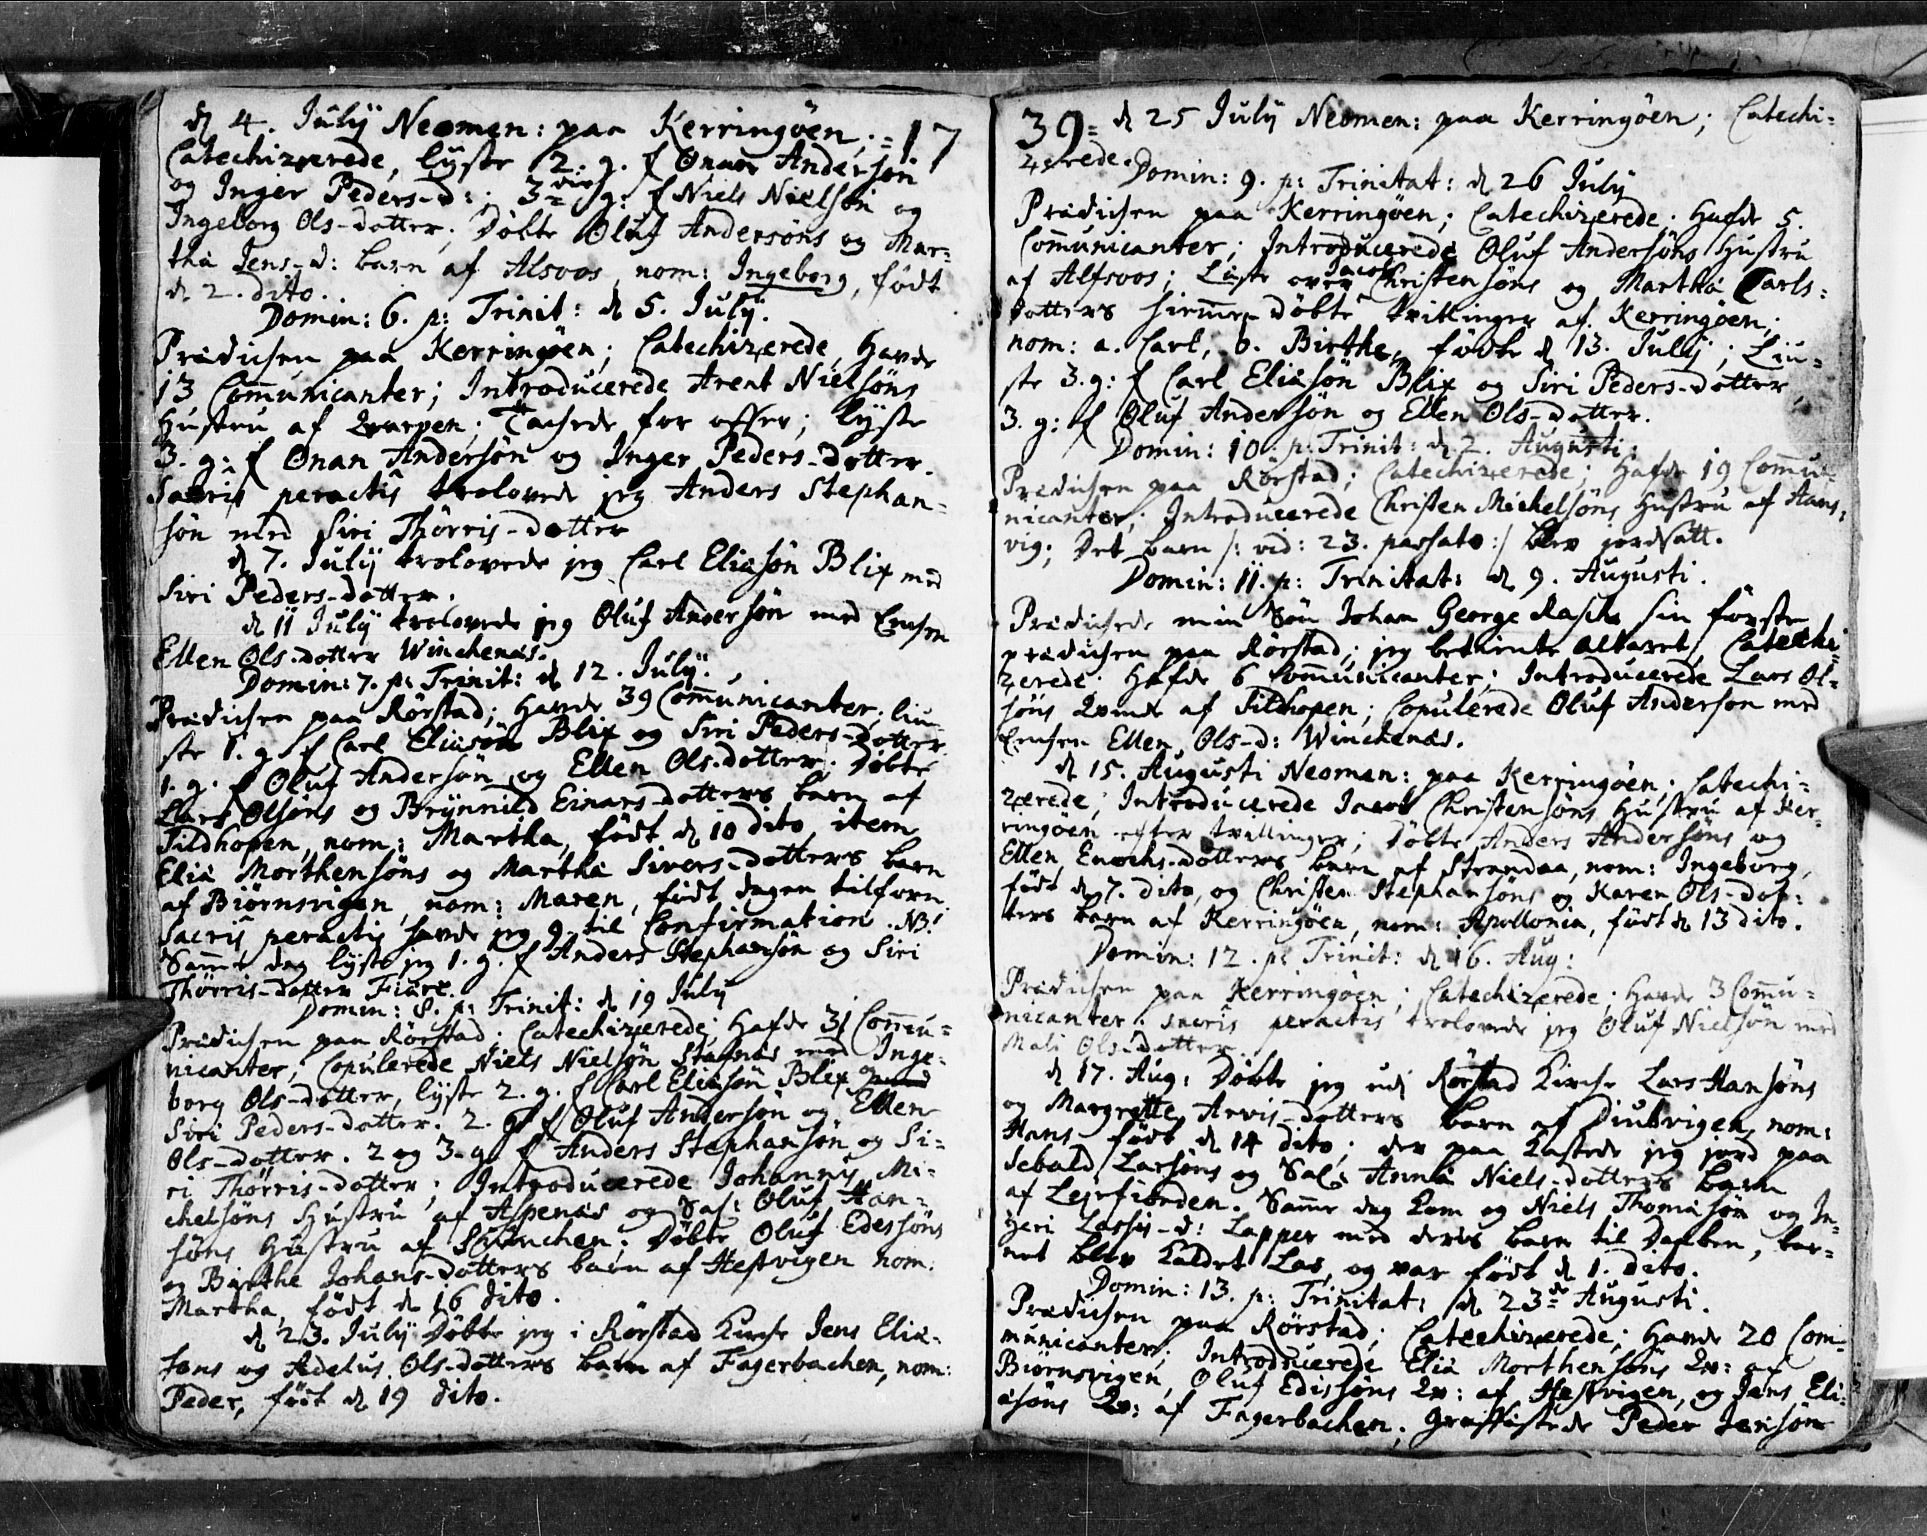 d 4. Julÿ Neomen: paa Kerringöen; = 17
Catechizerede, lÿste 2. g. f Onan Andersön
og Inger Peders-d:; 3die g: f Niels Nielsön og
Ingeborg Ols-dotter; Döbte Oluf Andersöns og Mar-
tha Jens-d: barn af Alsoos, nom: Ingeborg, födt
d 2. dito.
Domin: 6. p: Trinit: d 5. Julÿ.
Prædichen paa Kerringöen; Catechizerede, Havde
13 Communicanter; Introducerede Arent Nielsöns
Hustru af Qvarpen; Tachede for offer; lÿste
3. g: f Onan Andersön og Inger Peders-dotter.
Sacris peractis trolovede jeg Anders Stephan-
sön med Siri Thörris-dotter
d 7. Julÿ trolovede jeg Carl Eliasön Blix med
Siri Peders-dotter.
d 11 Julÿ trolovede jeg Oluf Andersön med Enchen
Ellen Ols-dotter Winchenæs.
Domin: 7. p: Trinit: d 12. Julÿ.
Prædichen paa Rörstad; Havde 39 Communicanter; liu-
ste 1. g. f Carl Eliasön Blix og Siri Peders-dotter
1. g. f Oluf Andersön og Ellen Ols-dotter; Döbte
Lars Olsöns og Brÿnnild Einars-dotters barn af
Tildhopen, nom: Martha, födt d 10 dito, item
Elia Morthensöns og Martha Sivers-dotters barn
af Biörnsvigen, nom: Maren, födt dagen tilforn.
Sacris peractis havde jeg 9 til Confirmation. NB.
Samme dag lÿste jeg 1. g. f Anders Stephansön og Siri
Thörris-dotter Fiære.
Domin: 8. p: Trinit: d 19 Julÿ
Prædichen paa Rörstad; Catechizerede; Hafde 31 Commu-
nicanter; Copulerede Niels Nielsön Stafnæs med Inge-
borg Ols-dotter, lÿste 2. g. f Carl Eliasön Blix og
Siri Peders-dotter. 2. g f Oluf Andersön og Ellen
Ols-dotter. 2 og 3. g. f Anders Stephansön og Si-
ri Thörris-dotter; Introducerede Johannis Mi-
chelsöns Hustru af Aspenæs og Sal: Oluf Han-
söns Hustru af ; Döbte Oluf Edissöns
og Birthe Johans-dotters barn af Hestvigen nom:
Martha, födt d 16 dito.
d 23. Julÿ Döbte jeg i Rörstad Kirche Jens Elia-
sons og Adelus Ols-dotters barn af Fagerbachen, nom:
Peder, födt d 19 dito.
39= d 25 Julÿ Neomen: paa Kerringöen; Catechi-
zerede.
Domin: 9. p: Trinitat: d 26 Julÿ
Prædichen paa Kerringöen; Catechizerede; Hafde 5.
Communicanter; Introducerede Oluf Andersöns Hustru
af Alfsoos; Læste over Jacob Christensöns og Martha Carls-
dotters hiemme-döbte tvillinger af Kerringöen;
nom: a. Carl, b. Birthe, födte d 13. Julÿ; Liu-
ste 3. g: f Carl Eliasön Blix og Siri Peders-dotter,
3. g: f Oluf Andersön og Ellen Ols-dotter.
Domin: 10. p: Trinit: d 2. Augusti.
Prædichen paa Rörstad; Catechizerede; Hafde 19 Commu-
nicanter; Introducerede Christen Michelsöns Hustru af Hans-
vig; Det barn /: vid: 23. passato :/ blev jordsatt.
Domin: 11. p: Trinitat: d 9. Augusti.
Prædichede min Sön Johan George Rasch sin förste
prædichen paa Rörstad; jeg betiente altaret, Catechi-
zerede; Hafde 6 Communicanter; Introducerede Lars Ol-
söns Qvinde af Tildhopen; Copulerede Oluf Anderson med
Enchen Ellen Ols-d: Winchenæs.
d 15. Augusti Neomen: paa Kerringöen; Catechi-
zerede; Introducerede Jacob Christensöns Hustru af Ker-
ringöen efter tvillinger; Döbte Anders Andersöns og
Ellen Enochs-dotters barn af Strandaa, nom: Ingeborg,
födt d 7. dito, og Christen Stephansöns og Karen Ols-dot-
ters barn af Kerringöen, nom: Apollonia, födt d 13 dito.
Domin: 12. p: Trinit: d 16. Aug:
Prædichen paa Kerringöen; Catechizerede; Havde 3 Commu-
nicanter. Sacris peractis trolovede jeg Oluf Nielsön med
Mali Ols-dotter
d 17. Aug: Döbte jeg udi Rörstad Kirche Lars Hansöns
og Margrette Arvis-dotters barn af Diubvigen, nom:
Hans födt d 14 dito; der paa kastede jeg jord paa
Sebald Larsöns og Sal: Anna Niels-dotters barn
af Leirfiorden. Samme dag kom og Niels Thomasön og In-
geri Lasses-d: Lapper med deres barn til Daaben, bar-
net blev kaldet Las, og var födt d 1. dito.
Domin: 13. p: Trinitat: d 23de Augusti.
Prædichen paa Rörstad; Catechizerede; Havde 20 Com-
municanter; Introducerede Elia Morthensöns Qv: af
Biörnsvigen, Oluf Edissöns Qv: af Hestvigen, og Jens Eli-
asöns Qv: af Fagerbachen; Graffæstede Peder Jensön